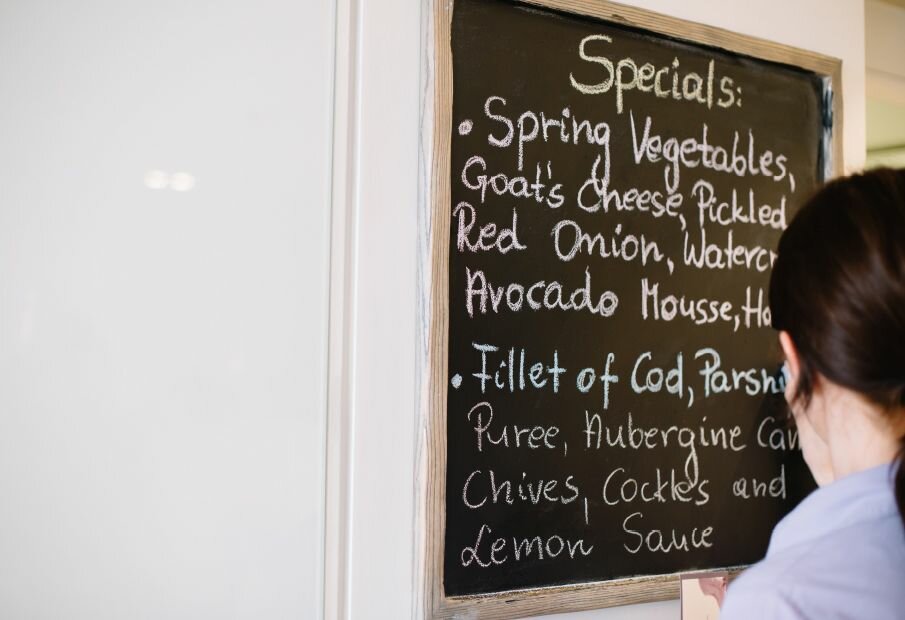 Specials:
• Spring Vegetables,
Goat's Cheese, Pickled
Red Onion,
Avocado Mousse,
• Fillet of Cod,
Puree, Aubergine
Chives, Cockles and
Lemon Sauce